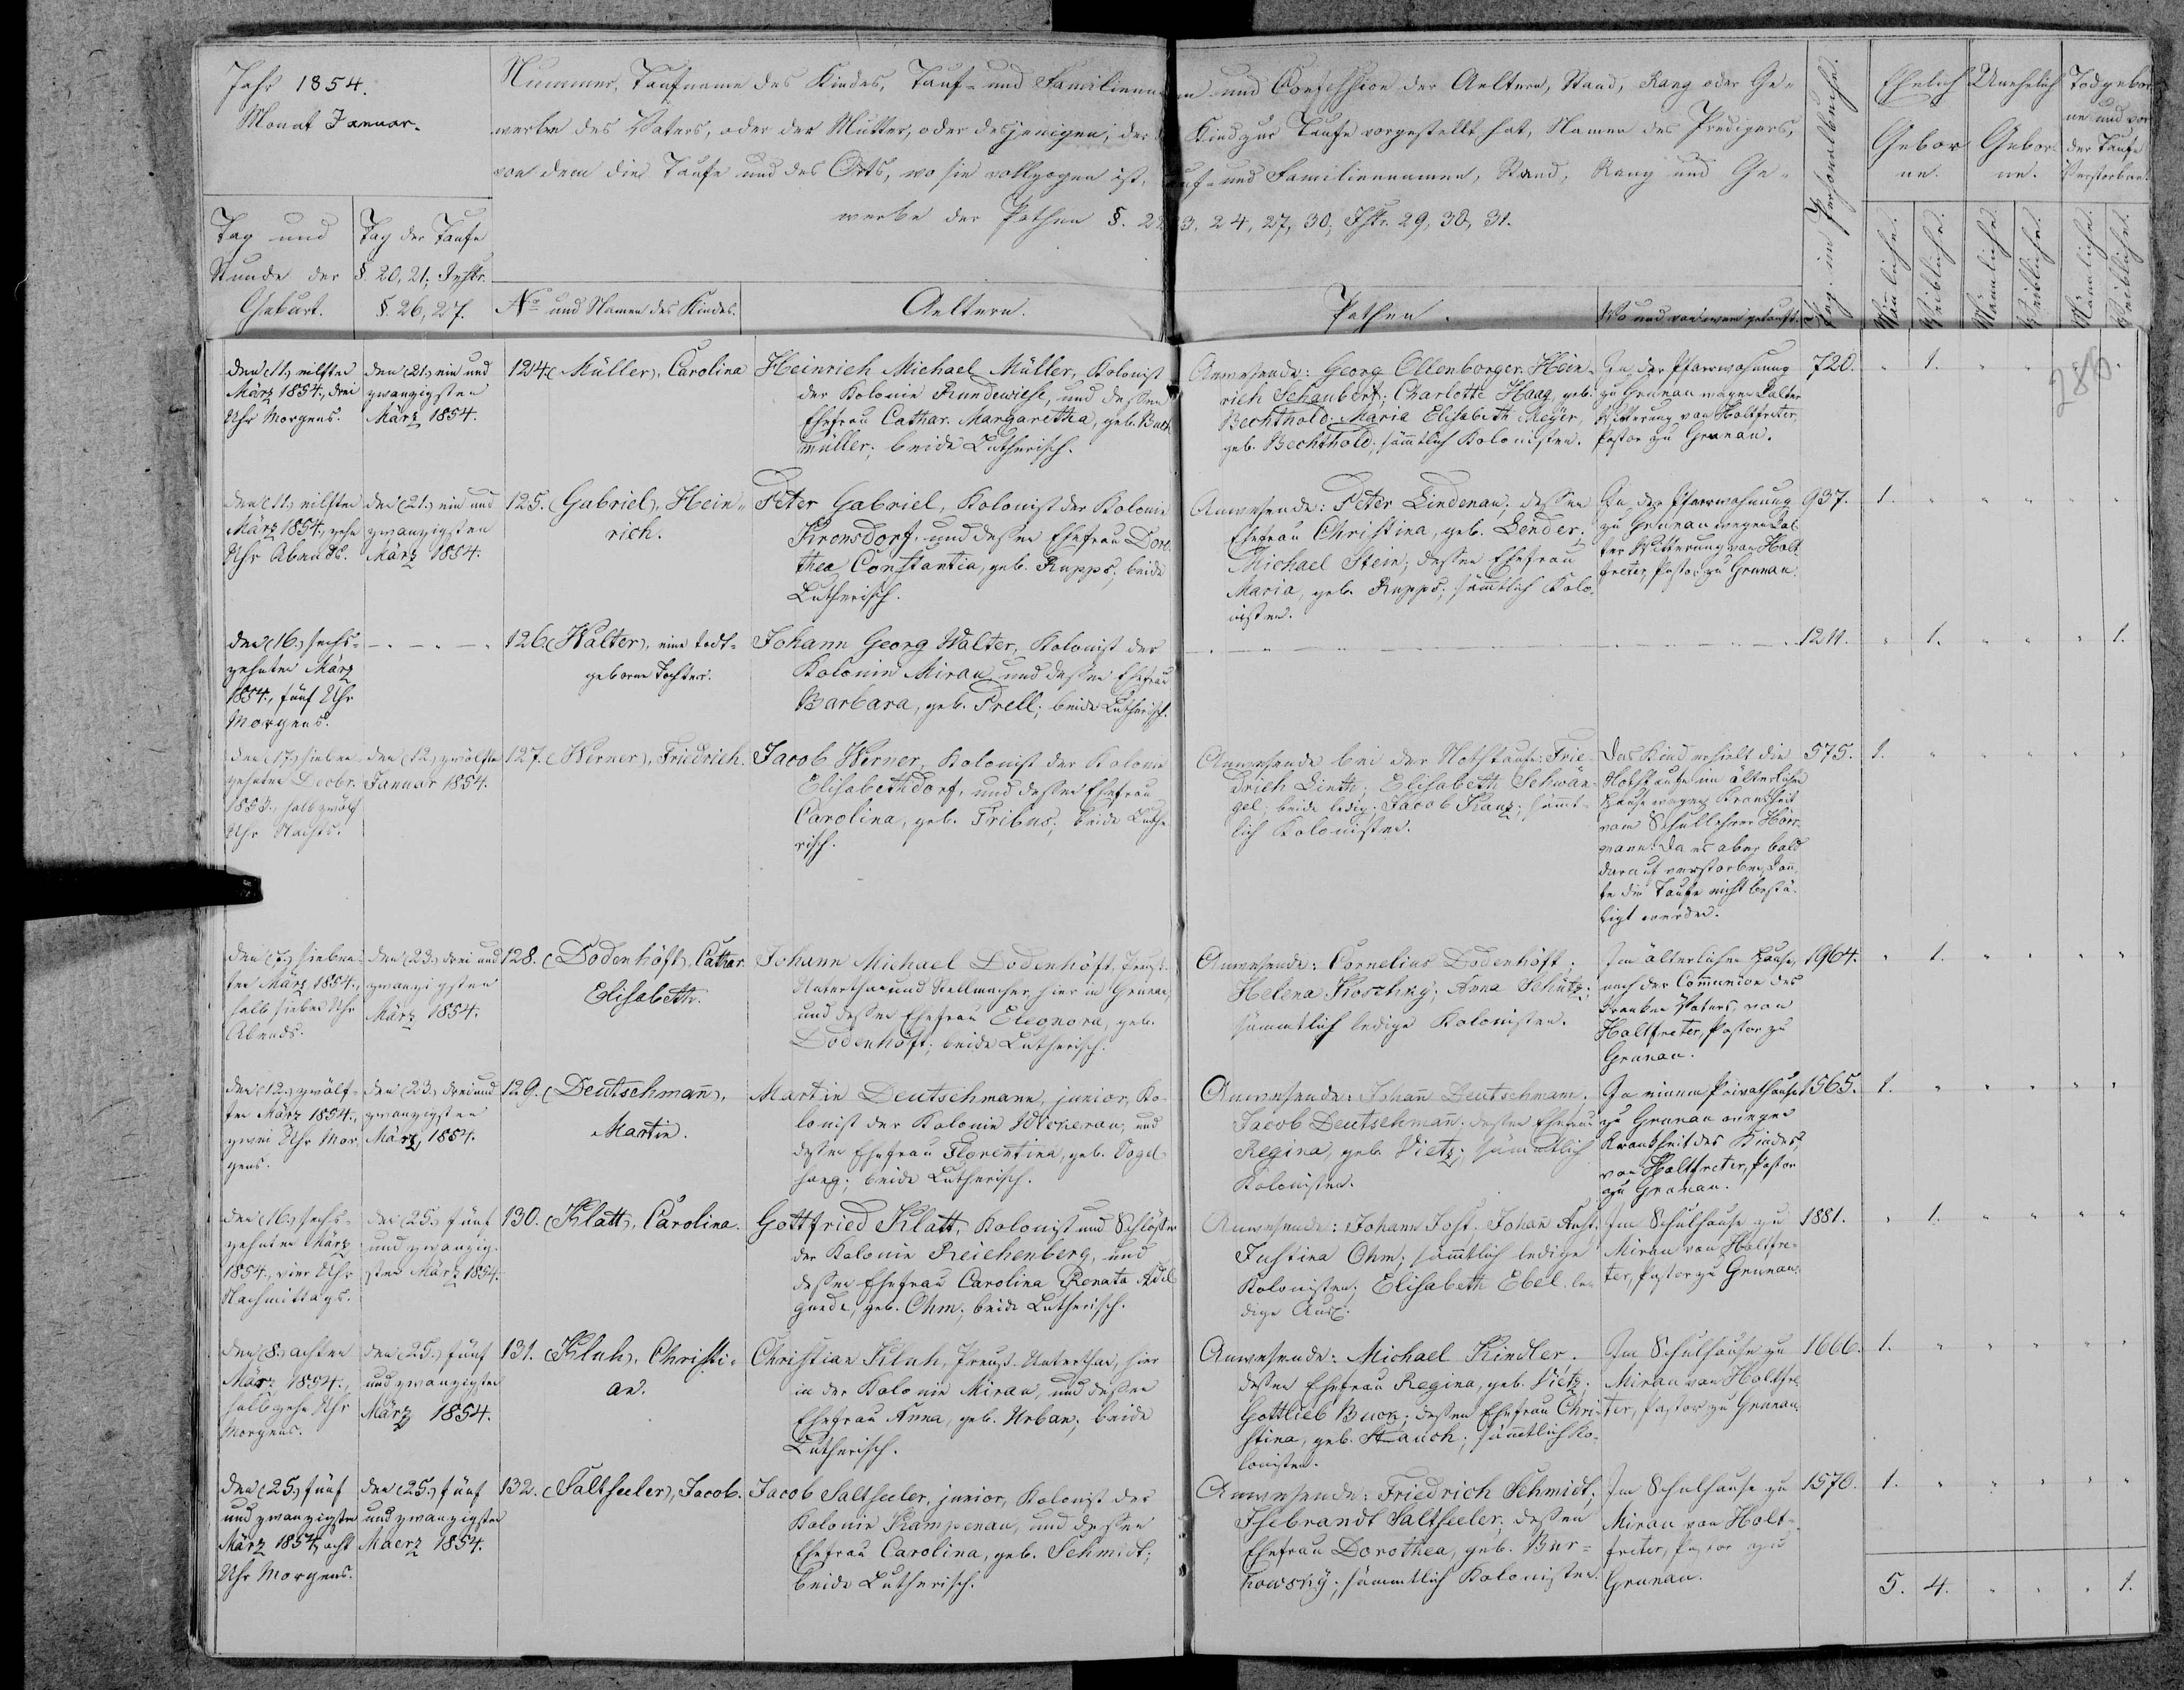 Jahr 1854.
Monat Januar.
Nummer, Taufname des Kindes, Tauf- und Familienna
men und Confession der Aeltern, Stand, Rang oder Ge-
werbe des Vaters, oder der Mutter, oder desjenigen, der d
Kind zur Taufe vorgestellt hat, Namen des Predigers,
von dem die Taufe und des Orts, wo sie vollzogen ist,
auf- und Familiennamen, Stand, Rang und Ge-
werbe der Pathen §. 22
3. 24, 27, 30; Istr. 29, 30, 31.
Tag und
Stunde der
Geburt.
Tag der Taufe
§. 20, 21; Instr.
§. 26, 27.
No und Namen des Kindes.
Aeltern.
Pathen.
Wo und von wem getauft.
Pag. im Personalbuche.
Ehelich
Gebor
ne.
Unehelich
Gebor-
ne.
Todgebor
ne und vor
der Taufe
Verstorbene.
Männliche.
Weibliche.
Männliche
Weibliche.
Männliche.
Weibliche.
286.
den (11.) eilften
März 1854., drei
Uhr Morgens.
den (21.) ein und
zwanzigsten
März 1854.
124. (Müller), Carolina
Heinrich Michael Müller, Kolonist
der Kolonie Rundewiese, und dessen
Ehefrau Cathar. Margaretha, geb. Buch
müller; beide Lutherisch.
Anwesende: Georg Ollenborger. Hein-
rich Schaubert; Charlotte Haag, geb.
Bechthold. Maria Elisabeth Meyer,
geb. Bechthold; sämtlich Kolonisten.
In der Pfarrwohnung
zu Grunau wegen kalter
Witterung von Holtfreter,
Pastor zu Grunau.
720. " 1. " "
den (11.) eilften
März 1854., zehn
Uhr Abends.
den (21.) ein und
zwanzigsten
März 1854.
125. (Gabriel), Hein-
rich.
Peter Gabriel, Kolonist der Kolonie
Kronsdorf, und dessen Ehefrau Doro
thea Constantia, geb. Rupps; beide
Lutherisch.
Anwesende: Peter Lindenau; dessen
Ehefrau Christina, geb. Bender;
Michael Stein; dessen Ehefrau
Maria, geb. Rupps; sämtlich Kolo-
nisten.
In der Pfarrwohnung
zu Grunau wegen kal
ter Witterung von Holt
freter, Pastor zu Grunau.
937. 1. " " " "
den (16.) sechs-
zehnten März
1854., fünf Uhr
Morgens.
126. (Walter), eine todt-
geborne Tochter.
Johann Georg Walter, Kolonist der
Kolonie Mirau und dessen Ehefrau
Barbara, geb. Prell; beide Lutherisch.
1211. " 1. " " " 1.
den (17.) sieben
zehnten Decbr.
1853., halb zwölf
Uhr Nachts.
den (12.) zwölften
Januar 1854.
127. (Werner), Friedrich.
Jacob Werner, Kolonist der Kolonie
Elisabethdorf, und dessen Ehefrau
Carolina, geb. Tribus; beide Luthe
risch.
Anwesende bei der Nothtaufe: Frie-
drich Linth; Elisabeth Schwän-
gel; beide ledig. Jacob Kanz; sämt-
lich Kolonisten.
Das Kind erhielt die
Nothtaufe im älterlichen
Hause wegen Krankheit
vom Schullehrer Herr-
mann. Da es aber bald
darauf verstorben, konn
te die Taufe nicht bestä-
tigt werden.
575. 1. " " " " "
den (7.) sieben
ten März 1854.,
halb sieben Uhr
Abends.
den (23.) drei und
zwanzigsten
März 1854.
128. (Dodenhöft), Cathar.
Elisabeth.
Johann Michael Dodenhöft, Preuß.
Unterthan und Stellmacher, hier in Grunau,
und dessen Ehefrau Eleonora, geb.
Dodenhöft; beide Lutherisch.
Anwesende: Cornelius Dodenhöft.
Helena Koschky; Anna Schütz;
sämmtlich ledige Kolonisten.
Im älterlichen Hause,
nach der Communion des
kranken Vaters, von
Holtfreter, Pastor zu
Grunau.
1964. " 1. " " " "
den (12.) zwölf-
ten März 1854.,
zwei Uhr Mor-
gens.
den (23.) drei und
zwanzigsten
März 1854.
129. (Deutschmañ),
Martin.
Martin Deutschmann, junior, Ko-
lonist der Kolonie Wickerau, und
dessen Ehefrau Florentina, geb. Vogel
sang; beide Lutherisch.
Anwesende: Johañ Deutschmann.
Jacob Deutschmañ; dessen Ehefrau
Regina, geb. Vietz; sämmtlich
Kolonisten.
In einem Privathause
zu Grunau wegen
Krankheit des Kindes,
von Holtfreter, Pastor
zu Grunau.
1565. 1. " " " " "
den (16.) sechs-
zehnten März
1854., vier Uhr
Nachmittags.
den (25.) fünf
und zwanzig-
sten März 1854.
130. (Klatt), Carolina.
Gottfried Klatt, Kolonist und Schlosser
der Kolonie Reichenberg, und
dessen Ehefrau Carolina Renata Adel
gunde, geb. Ohm; beide Lutherisch.
Anwesende: Johann Jost. Johañ Aust.
Justina Ohm; sämtlich ledige
Kolonisten; Elisabeth Ebel, le-
dige
Im Schulhause zu
Mirau von Holtfre-
ter, Pastor zu Grunau.
1881. " 1. " " " "
den (8.) achten
März 1854.,
halb zehn Uhr
Morgens.
den (25.) fünf
und zwanzigsten
März 1854.
131. (Kluh), Christi-
an.
Christian Kluh, Preuß. Unterthan, hier
in der Kolonie Mirau, und dessen
Ehefrau Anna, geb. Urban; beide
Lutherisch.
Anwesende: Michael Kindler,
dessen Ehefrau Regina, geb. Vietz;
Gottlieb Buck; dessen Ehefrau Chri-
stina, geb. Strauch; sämmtlich Ko-
lonisten.
Im Schulhause zu
Mirau von Holtfre
ter, Pastor zu Grunau.
1666. 1. " " " " "
den (25.) fünf
und zwanzigsten
März 1854, acht
Uhr Morgens.
den (25.) fünf
und zwanzigsten
Maerz 1854.
132. (Saltseeler), Jacob.
Jacob Saltseeler, junior, Kolonist der
Kolonie Kampenau, und dessen
Ehefrau Carolina, geb. Schmidt;
beide Lutherisch.
Anwesende: Friedrich Schmidt;
Isebrandt Saltseeler, dessen
Ehefrau Dorothea, geb. Bur-
kowsky; sämmtlich Kolonisten.
Im Schulhause zu
Mirau von Holt-
freter, Pastor zu
Grunau.
1570. 1. " " " " "
5. 4. " " " 1.